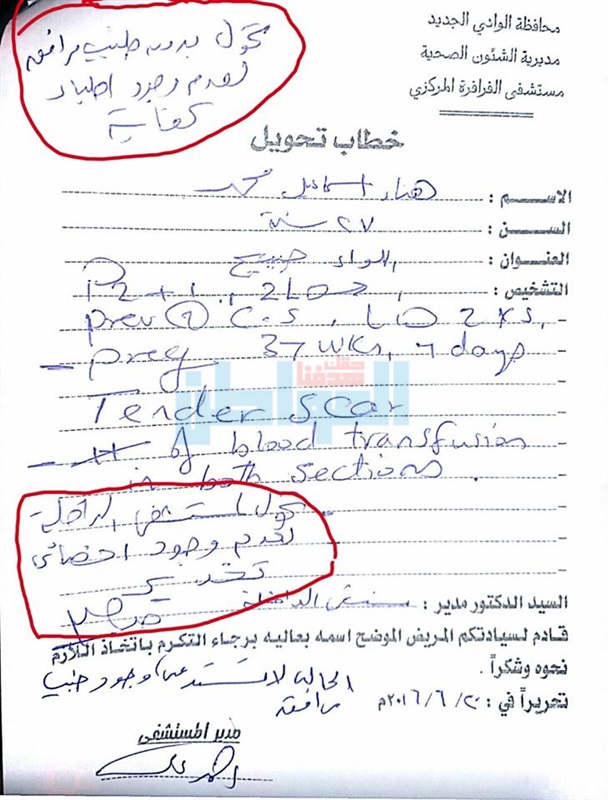 محافظة الوادي الجديد
مديرية الشئون الصحية
مستشفى الفرافرة المركزي
محول بدون طبيب مرافق
لعدم وجود اطباء
كفاية
خطاب تحويل
الاسم : هناء اسماعيل محمد
السن : ٢٧ سنة
العنوان : اللواء صبيح
التشخيص : P2+1, 2
prev 2 C.S,
- preg 37 wks, 4 days
Tender scar
- of blood transfusion
in both sections
محول لمستشفى الداخلة
لعدم وجود اخصائى
تخدير
السيد الدكتور مدير : مستشفى الداخلة
قادم لسيادتكم المريض الموضح اسمه بعاليه برجاء التكرم باتخاذ اللازم
نحوه وشكراً .
الحالة لا تستدعى وجود طبيب
مرافق
تحريراً في : ٢٠ / ٦ / ٢٠١٦م
مدير المستشفى
المواطن